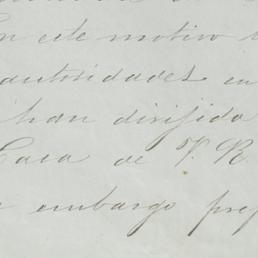 este motivo
autoridades en
han dirijida
Casa de V. R.
embargo